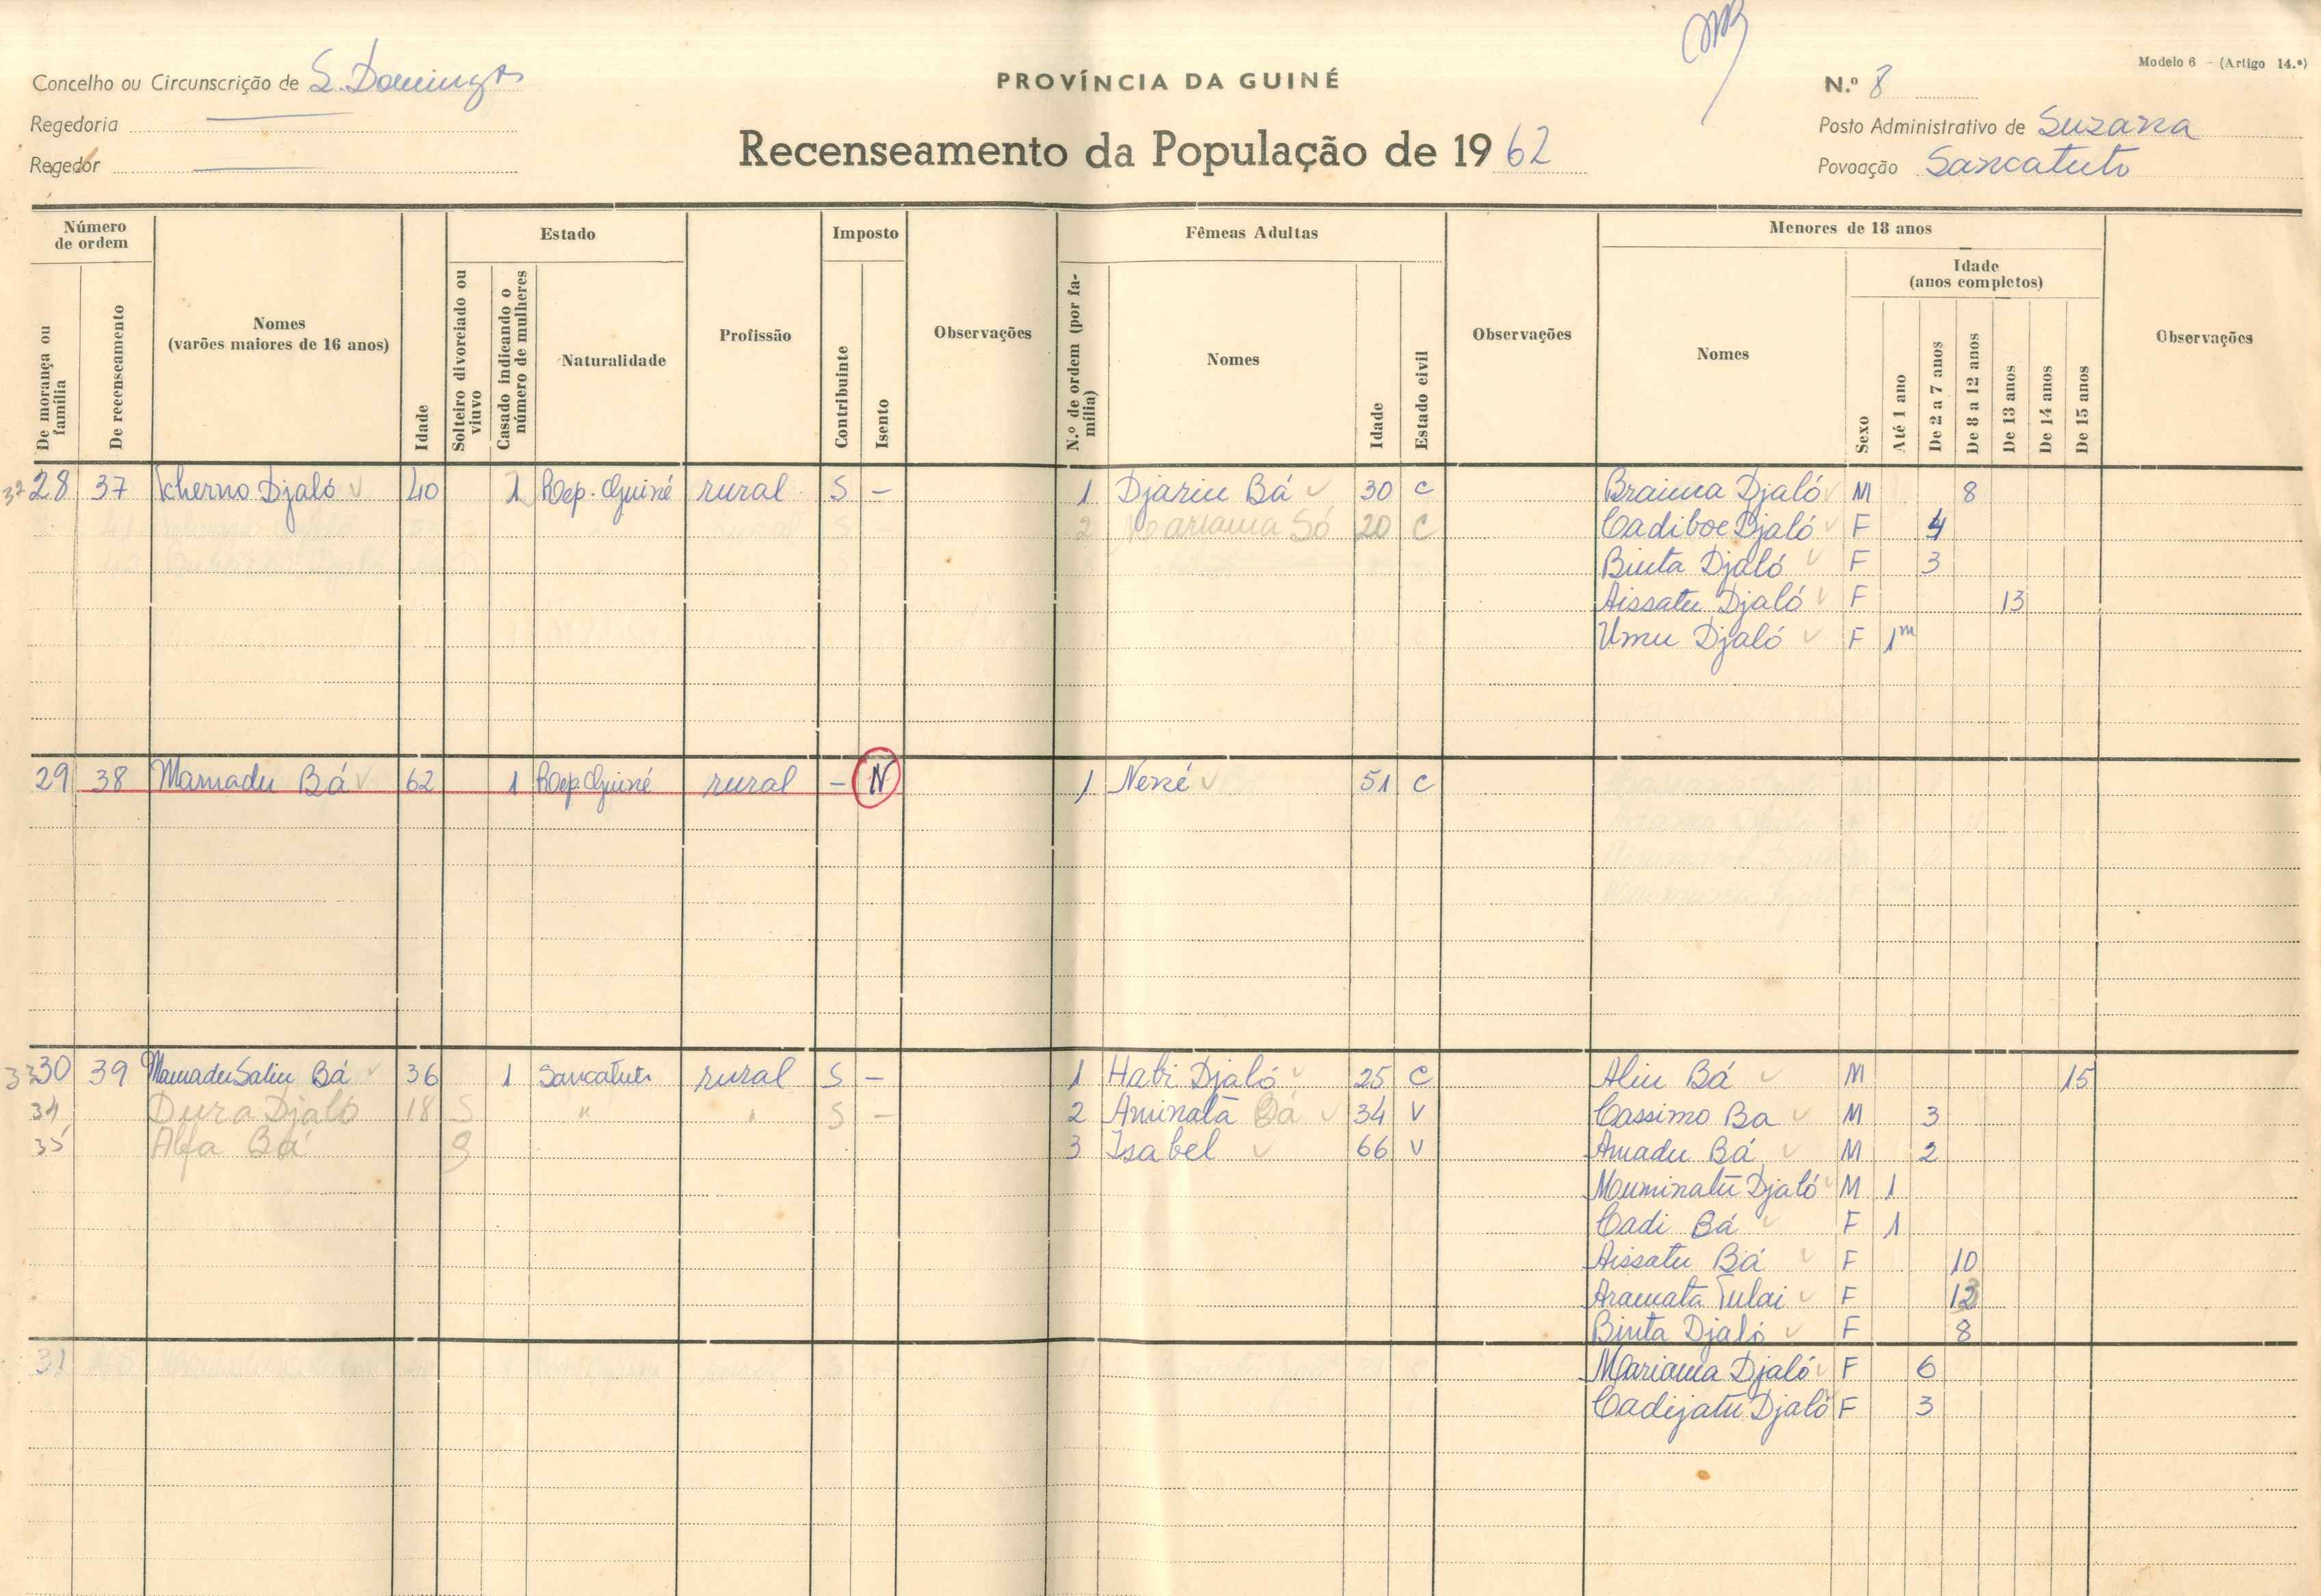 Modelo 6 - (Artigo 14.º)
Concelho ou Circunscrição de S. Domingos
PROVÍNCIA DA GUINÉ
N.º 8
Regedoria
Posto Administrativo de Suzana
Regedor
Recenseamento da População de 1962
Povoação Sancatuto
Número de ordem
Estado
Imposto
Fêmeas Adultas
Menores de 18 anos
Idade
(anos completos)
De morança ou família
De recenseamento
Nomes
(varões maiores de 16 anos)
Idade
Solteiro divorciado ou viuvo
Casado indicando o número de mulheres
Naturalidade
Profissão
Contribuinte
Isento
Observações
N.º de ordem (por família)
Nomes
Idade
Estado civil
Observações
Nomes
Sexo
Até 1 ano
De 2 a 7 anos
De 8 a 12 anos
De 13 anos
De 14 anos
De 15 anos
Observações
32 28 37 Tcherno Djaló 40 1 Rep. Guiné rural S - 1 Djariu Bá 30 C Braima Djaló M 8
2 Mariama Só 20 C Cadiboe Djaló F 4
Binta Djaló F 3
Aissatu Djaló F 13
Umu Djaló F 1m
29 38 Mamadu Bá 62 1 Rep. Guiné rural - N 1 Nené 51 C
33 30 39 Mamadu Saliu Bá 36 1 Sancatuto rural S - 1 Habi Djaló 25 C Aliu Bá M 15
34 Dura Djaló 18 S " " S - 2 Aminata Bá 34 V Cassimo Ba M 3
35 Alfa Bá S 3 Isabel 66 V Amadu Bá M 2
Muminatu Djaló M 1
Cadi Bá F 1
Aissatu Bá F 10
Aramata Tulai F
Binta Djaló F 8
31 Mariama Djaló F 6
Cadijatu Djaló F 3